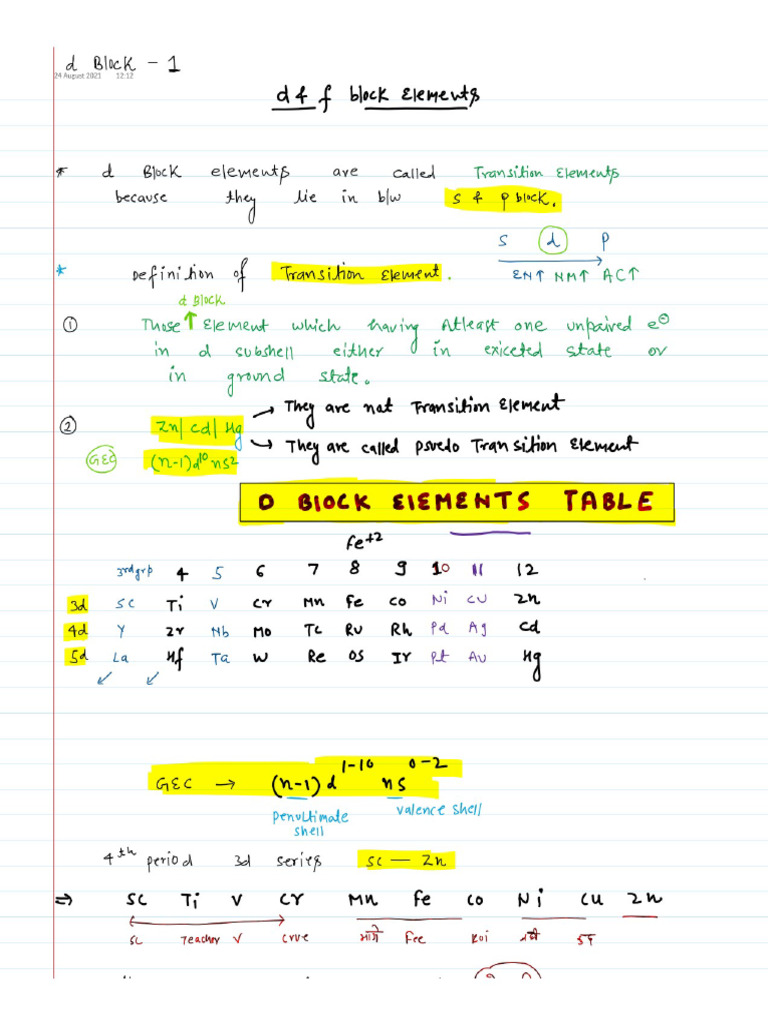 d Block - 1
24 August 2021 12:12
d & f block elements
* d Block elements are called Transition Elements
because they lie in b/w s & p block.
s d p
EN↑ NM↑ AC↑
* Definition of Transition Element.
d Block
① Those ↑ Element which having Atleast one unpaired e⊖
in d subshell either in exiceted state or
in ground state.
② Zn| Cd| Hg → They are not Transition Element
→ They are called psuedo Transition Element
GEC (n-1)d¹⁰ ns²
D BlOCK ElEMENTS TABLE
Fe⁺²
3rd grp 4 5 6 7 8 9 10 11 12
3d Sc Ti V Cr Mn Fe Co Ni Cu Zn
4d Y Zr Nb Mo Tc Ru Rh Pd Ag Cd
5d La Hf Ta W Re Os Ir Pt Au Hg
GEC → (n-1)d¹⁻¹⁰ ns⁰⁻²
penultimate shell
valence shell
4th period 3d series Sc — Zn
⇒ Sc Ti V Cr Mn Fe Co Ni Cu Zn
Sc Teacher V Crue Fee Koi